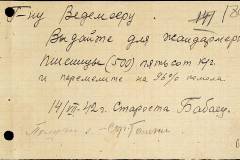 Г-ну Ведемееру.
Выдайте для жандармерии
пшеницы (500) пятьсот кгр.
и перемелите на 96% помола
14/VII-42г. Староста Бабаев.